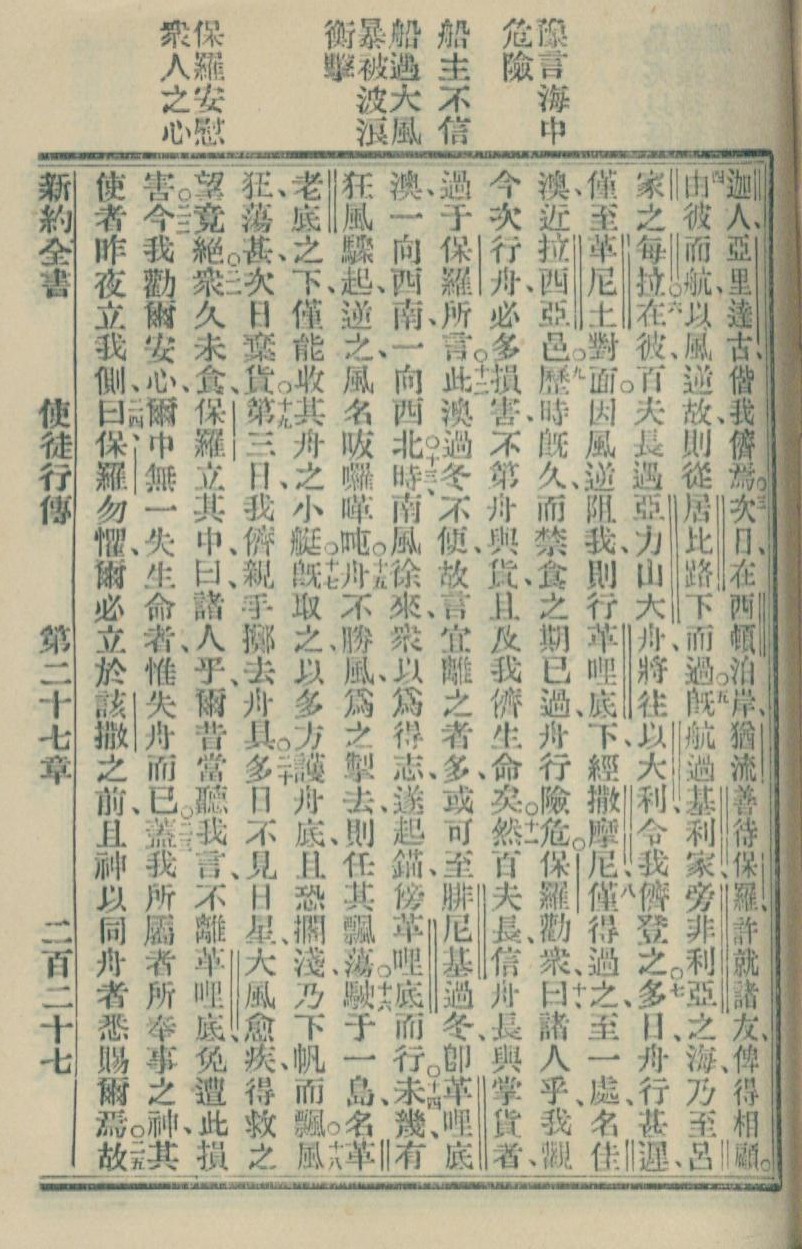 豫言海中
危險
船主不信
船遇大風
暴被波浪
衝擊
保羅安慰
衆人之心
迦人亞里達古偕我儕焉○三次日在西頓泊岸、猶流善待保羅、許就諸友、俾得相顧。
四由彼而航、以風逆故、則從居比路下而過、○五旣航過基利家旁非利亞之海、乃至呂
家之每拉○六在彼、百夫長遇亞力山大舟、將往以大利、令我儕登之、○七多日舟行甚遲、
僅至革尼土對面、因風逆阻我、則行革哩底下、經撒摩尼、八僅得過之、至一處、名佳
澳、近拉西亞邑○九歷時旣久、而禁食之期已過、舟行險危○保羅勸衆曰、十諸人乎、我觀
今次行舟、必多損害、不第舟與貨、且及我儕生命矣○十一然百夫長信舟長與掌貨者、
過于保羅所言○十二此澳過冬不便、故言宜離之者多、或可至腓尼基過冬、卽革哩底
澳、一向西南、一向西北○十三時南風徐來、衆以爲得志、遂起錨、傍革哩底而行○十四未幾、有
狂風驟起、逆之、風名㕹囉嗶吨○十五舟不勝風、爲之掣去、則任其飄蕩○十六駛于一島、名革
老底之下、僅能收其舟之小艇○十七旣取之、以多方護舟底、且恐擱淺、乃下帆而飄○十八風
狂、蕩甚、次日棄貨○十九第三日、我儕親手擲去舟具○二十多日不見日星、大風愈疾、得救之
望竟絕○二一衆久未食、保羅立其中曰、諸人乎、爾昔當聽我言、不離革哩底、免遭此損
害○二二今我勸爾安心、爾中無一失生命者、惟失舟而已○二三蓋我所屬者所奉事之神、其
使者昨夜立我側、二四曰、保羅勿懼、爾必立於該撒之前、且神以同舟者悉賜爾焉○二五故
新約全書　使徒行傳　第二十七章　二百二十七